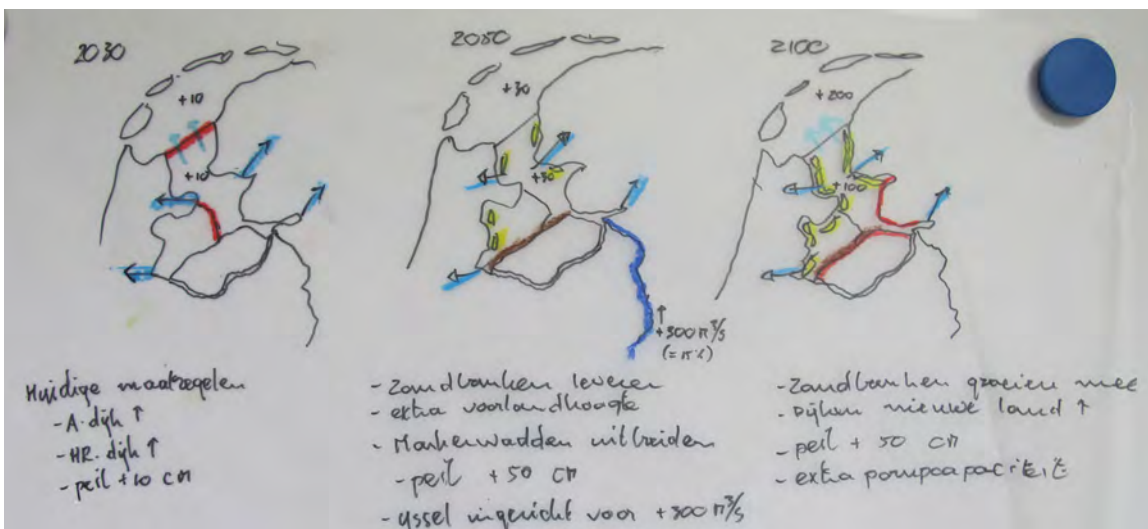 2030
+10
+10
Huidige maatregelen
- A.dijk ↑
- HR.dijk ↑
- peil +10 cm
2050
+30
+30
↑
+300 m³/s
- Zandbanken leveren
- extra voorlandhoogte
- Markerwadden uitbreiden
- peil +50 cm
- IJssel ingericht voor +300 m³/s
2100
+200
+100
- Zandbanken groeien mee
- Dijken nieuwe land ↑
- peil + 50 cm
- extra pompcapaciteit